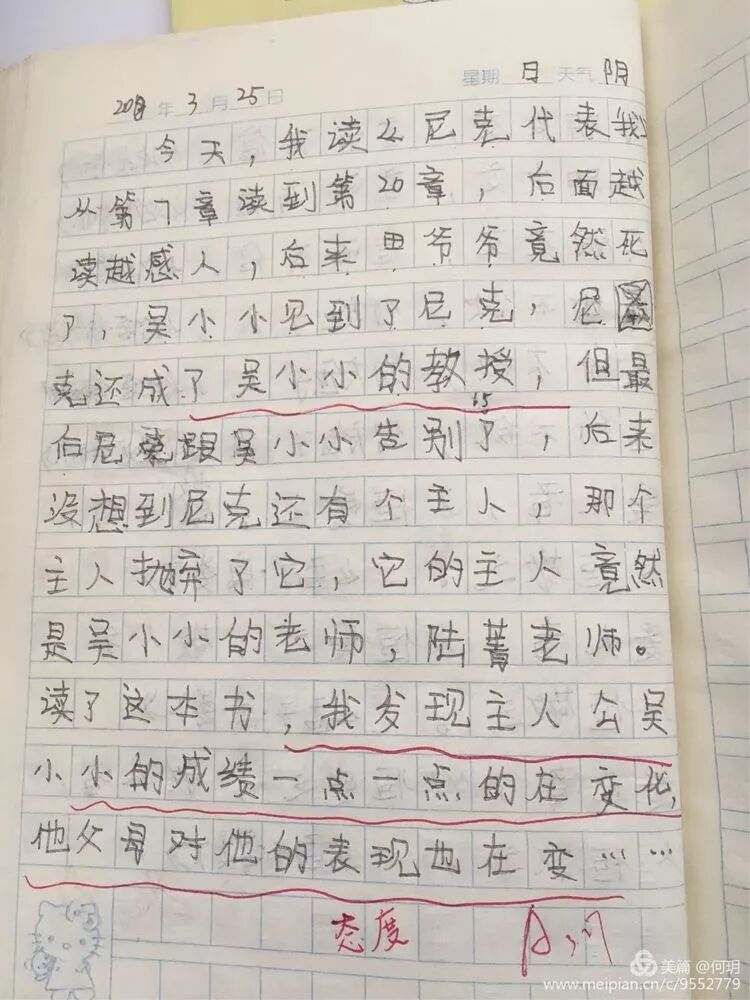 年 3 月 25 日 星期 日 天气 阴
今天，我读么尼克代表我
从第7章读到第20章，后面越
读越感人，后来田爷爷竟然死
了，吴小小见到了尼克，尼
克还成了吴小小的教授，但最
后尼克跟吴小小告别了，后来
没想到尼克还有个主人，那个
主人抛弃了它，它的主人竟然
是吴小小的老师，陆菁老师。
读了这本书，我发现主人公吴
小小的成绩一点一点的在变化，
他父母对他的表现也在变……
态度
美篇 @何玥
www.meipian.cn/c/9552779